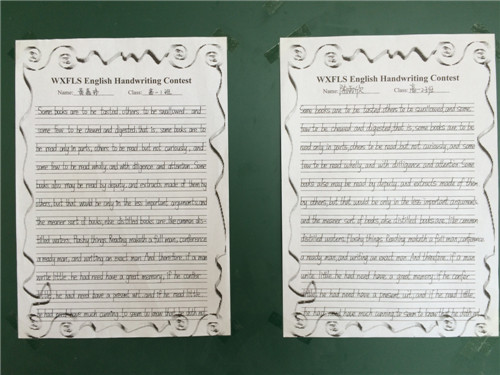 WXFLS English Handwriting Contest
Name: Class: 高一1班
Some books are to be tasted, others to be swallowed, and
some few to be chewed and digested; that is, some books are to
be read only in parts; others to be read but not curiously; and
some few to be read wholly, and with diligence and attention. Some
books also may be read by deputy, and extracts made of them by
others; but that would be only in the less important arguments, and
the meaner sort of books, else distilled books are like common dis-
tilled waters, flashy things. Reading maketh a full man; conference
a ready man; and writing an exact man. And therefore, if a man
write little, he had need have a great memory; if he confer
little, he had need have a present wit; and if he read little,
he had need have much cunning, to seem to know that he doth not.
WXFLS English Handwriting Contest
Name: Class:
Some books are to be tasted, others to be swallowed, and some
few to be chewed and digested; that is, some books are to be
read only in parts; others to be read but not curiously; and some
few to be read wholly, and with diligence and attention. Some
books also may be read by deputy, and extracts made of them
by others; but that would be only in the less important arguments
and the meaner sort of books, else distilled books are like common
distilled waters, flashy things. Reading maketh a full man; conference
a ready man; and writing an exact man. And therefore, if a man
write little, he had need have a great memory; if he confer
little, he had need have a present wit; and if he read little,
he had need have much cunning, to seem to know that he doth not